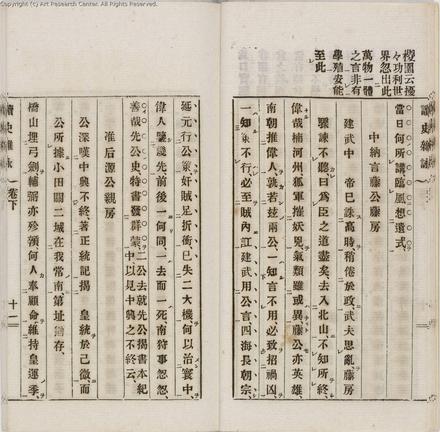 (c) Art Research Center. All Rights Reserved.
々功利世
界忽出此
萬物一體
之言非有
學殖安能
至此
當日何所講臨風想遺式
中納言藤公藤房
建武中帝已誅高時稍倦於政武夫思亂藤房
驟諫不聽曰爲臣之道盡矣去入北山不知所終
偉哉楠河州孤軍摧妖兇氣類雖或異藤公亦英雄
南朝推偉人孰若茲兩公一知言不用必致招禍凶
一知策不行必至賊內訌建武用公言四海長朝宗
延元行公策奸賊足折衝已失二大機何以治寰中
偉人鑒幾先前後一何同一去而一死南狩事怱怱
善哉先公史特書發群蒙
二公去就先公揭書本紀
中以見中興之不終云
准后源公親房
公深嘆中興不終著正統記揭皇統於已微而
公所據小田關二城在我常南第址猶存
橋山埋弓劍輔弼亦殄領何人奉顧命維持皇運季
卷下
十一